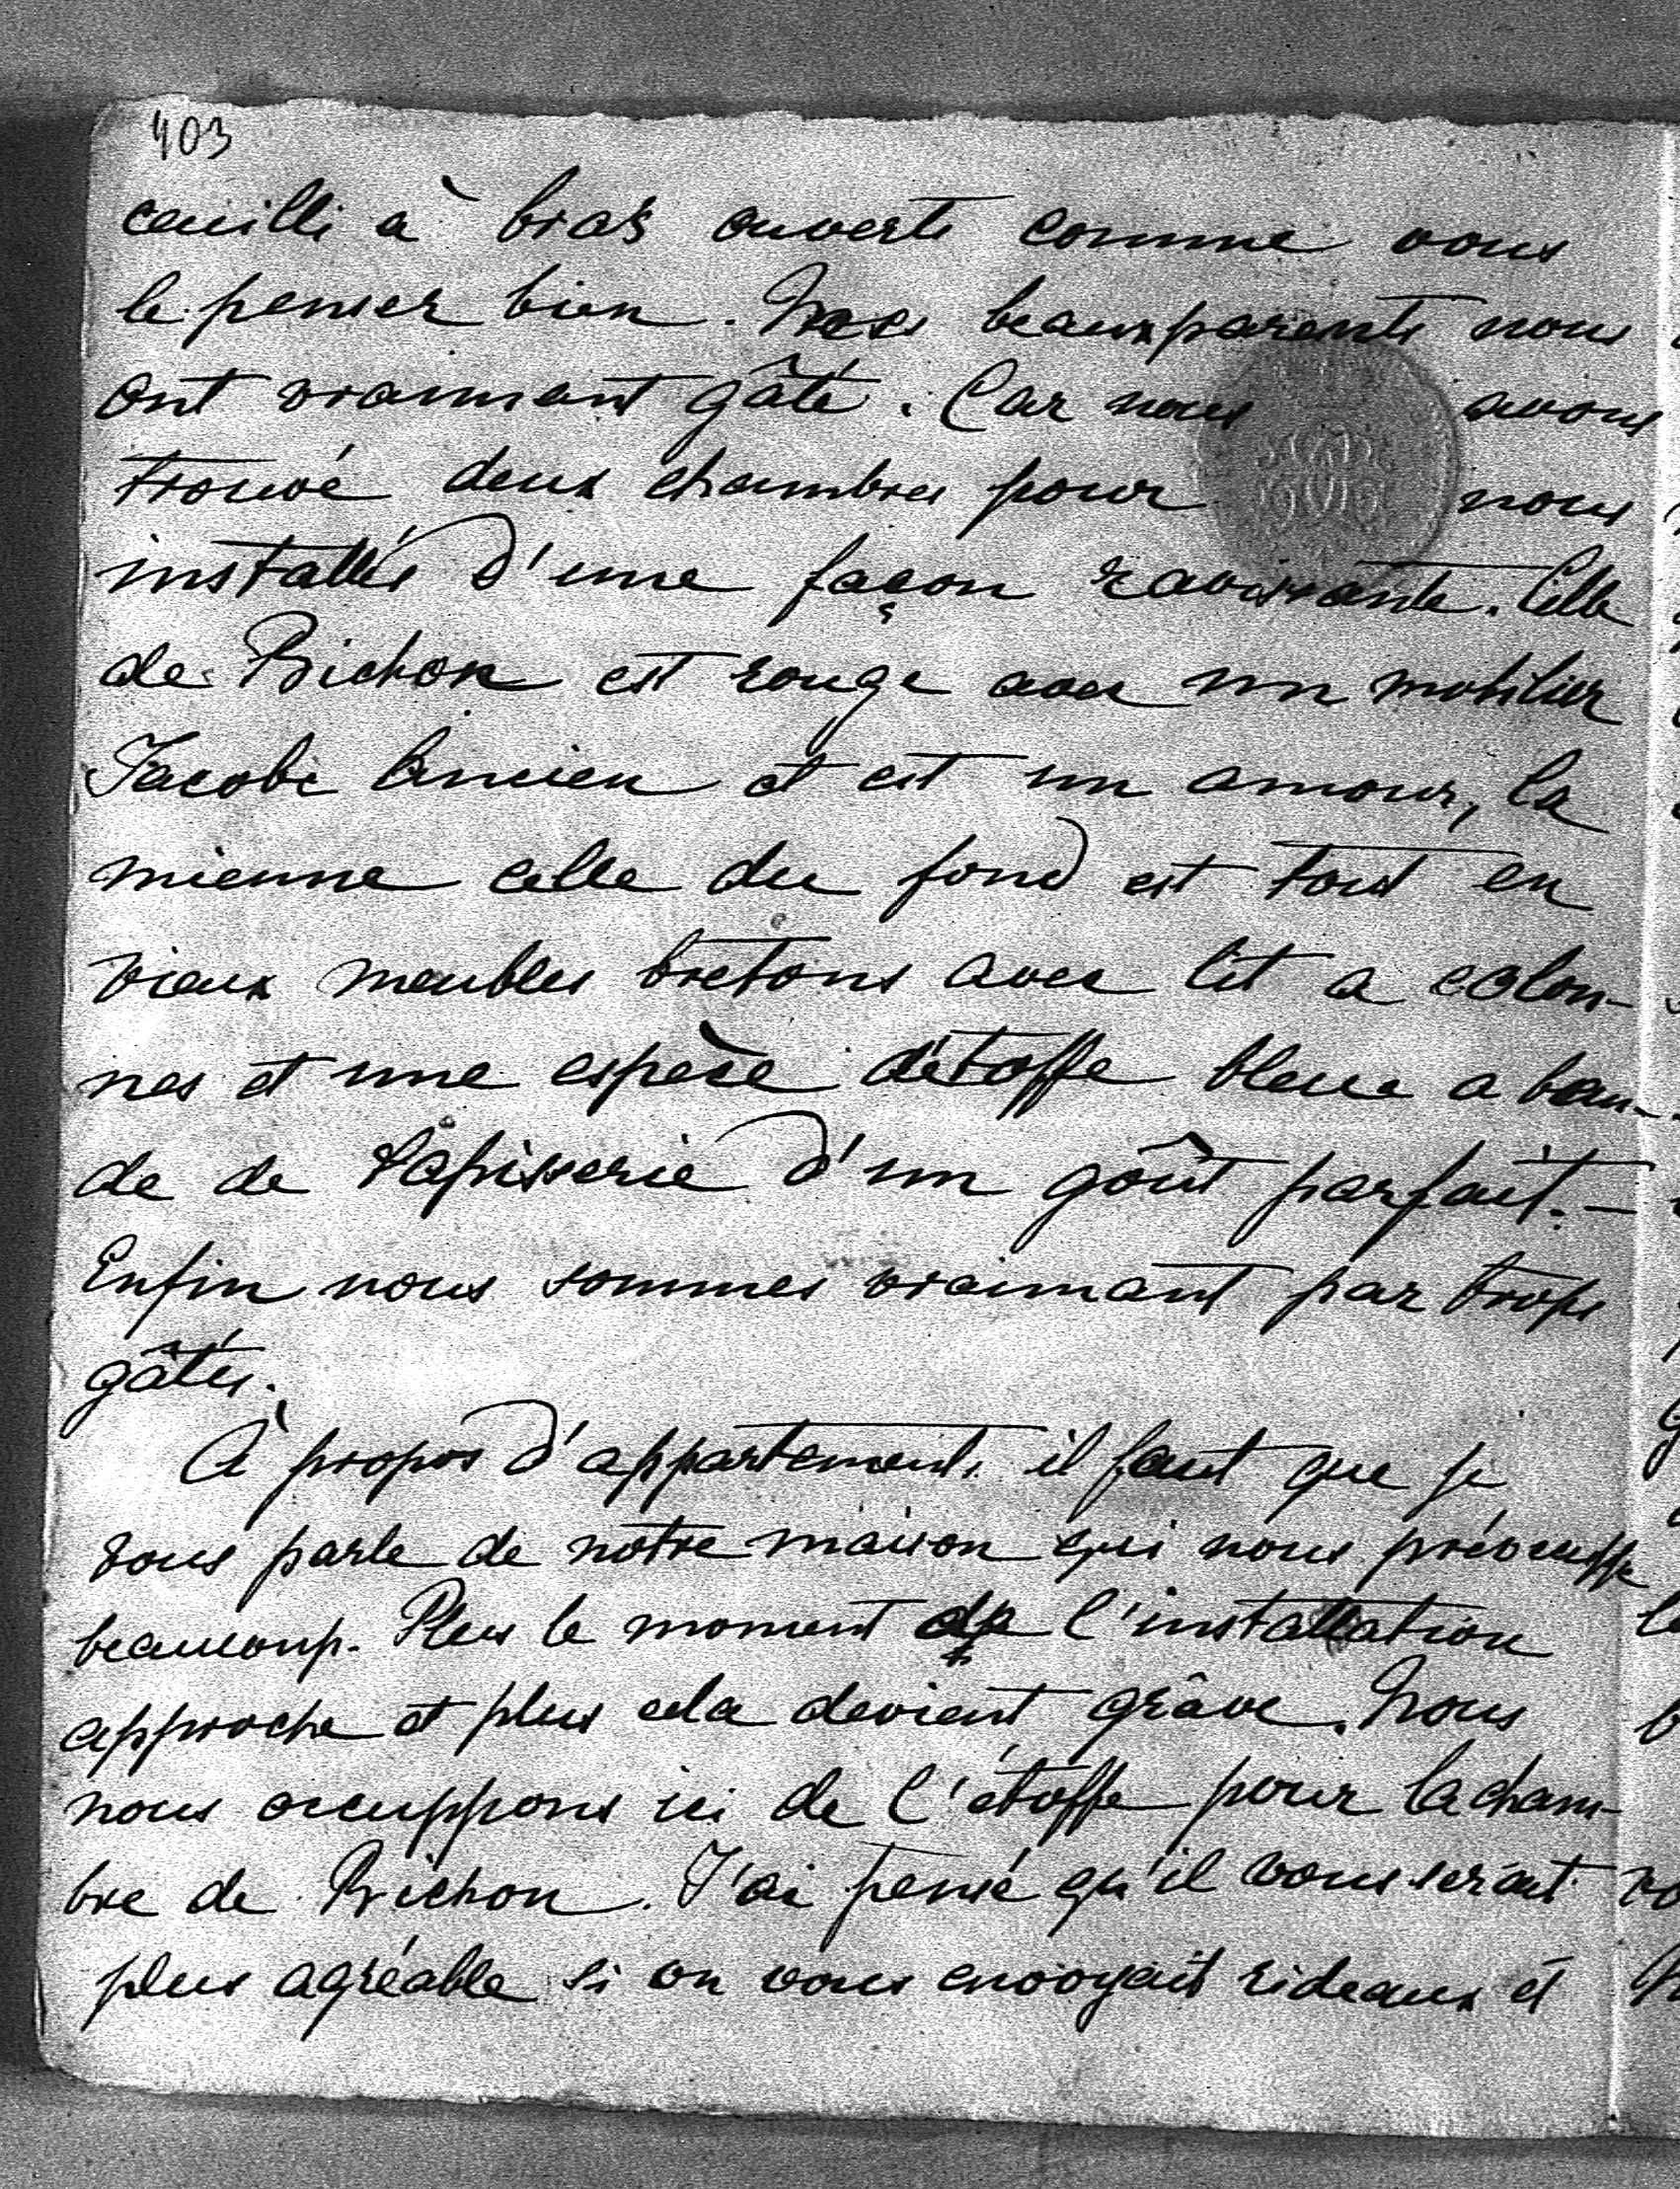 403
ceuilli à bras ouverts comme vous
le penser bien. Mes beauxparents nous
ont vraimant gâté. Car nous avons
trouvé deux chambres pour nous
installés d'une façon ravissante. Celle
de Bichon est rouge avec un mobilier
Jacobe Ancien et est un amour, la
mienne celle du fond est tout en
vieux meubles bretons avec lit a colon-
nes et une espèce d'étoffe bleue a ban-
de de tapisserie d'un goût parfait. —
Enfin nous sommes vraimant par trops
gâtés.
À propos d'appartements il faut que je
vous parle de notre maison qui nous préocuppe
beaucoup. Plus le moment de l'installation
approche et plus cela devient grâve. Nous
nous occuppons ici de l'étoffe pour la cham-
bre de Bichon. J'ai pensé qu'il vous serait
plus agréable si on vous envoyait rideaux et